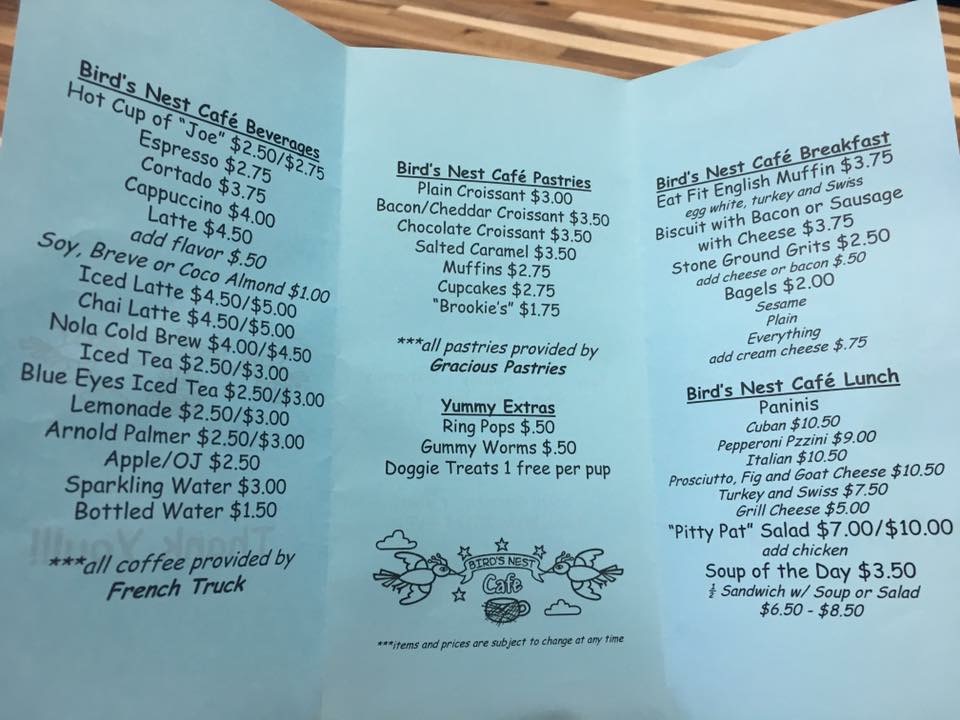 Bird's Nest Café Beverages
Hot Cup of "Joe" $2.50/$2.75
Espresso $2.75
Cortado $3.75
Cappuccino $4.00
Latte $4.50
add flavor $.50
Soy, Breve or Coco Almond $1.00
Iced Latte $4.50/$5.00
Chai Latte $4.50/$5.00
Nola Cold Brew $4.00/$4.50
Iced Tea $2.50/$3.00
Blue Eyes Iced Tea $2.50/$3.00
Lemonade $2.50/$3.00
Arnold Palmer $2.50/$3.00
Apple/OJ $2.50
Sparkling Water $3.00
Bottled Water $1.50
***all coffee provided by
French Truck
Thank You!!!
Bird's Nest Café Pastries
Plain Croissant $3.00
Bacon/Cheddar Croissant $3.50
Chocolate Croissant $3.50
Salted Caramel $3.50
Muffins $2.75
Cupcakes $2.75
"Brookie's" $1.75
***all pastries provided by
Gracious Pastries
Yummy Extras
Ring Pops $.50
Gummy Worms $.50
Doggie Treats 1 free per pup
BIRD'S NEST
Cafe
***items and prices are subject to change at any time
Bird's Nest Café Breakfast
Eat Fit English Muffin $3.75
egg white, turkey and Swiss
Biscuit with Bacon or Sausage
with Cheese $3.75
Stone Ground Grits $2.50
add cheese or bacon $.50
Bagels $2.00
Sesame
Plain
Everything
add cream cheese $.75
Bird's Nest Café Lunch
Paninis
Cuban $10.50
Pepperoni Pzzini $9.00
Italian $10.50
Prosciutto, Fig and Goat Cheese $10.50
Turkey and Swiss $7.50
Grill Cheese $5.00
"Pitty Pat" Salad $7.00/$10.00
add chicken
Soup of the Day $3.50
½ Sandwich w/ Soup or Salad
$6.50 - $8.50